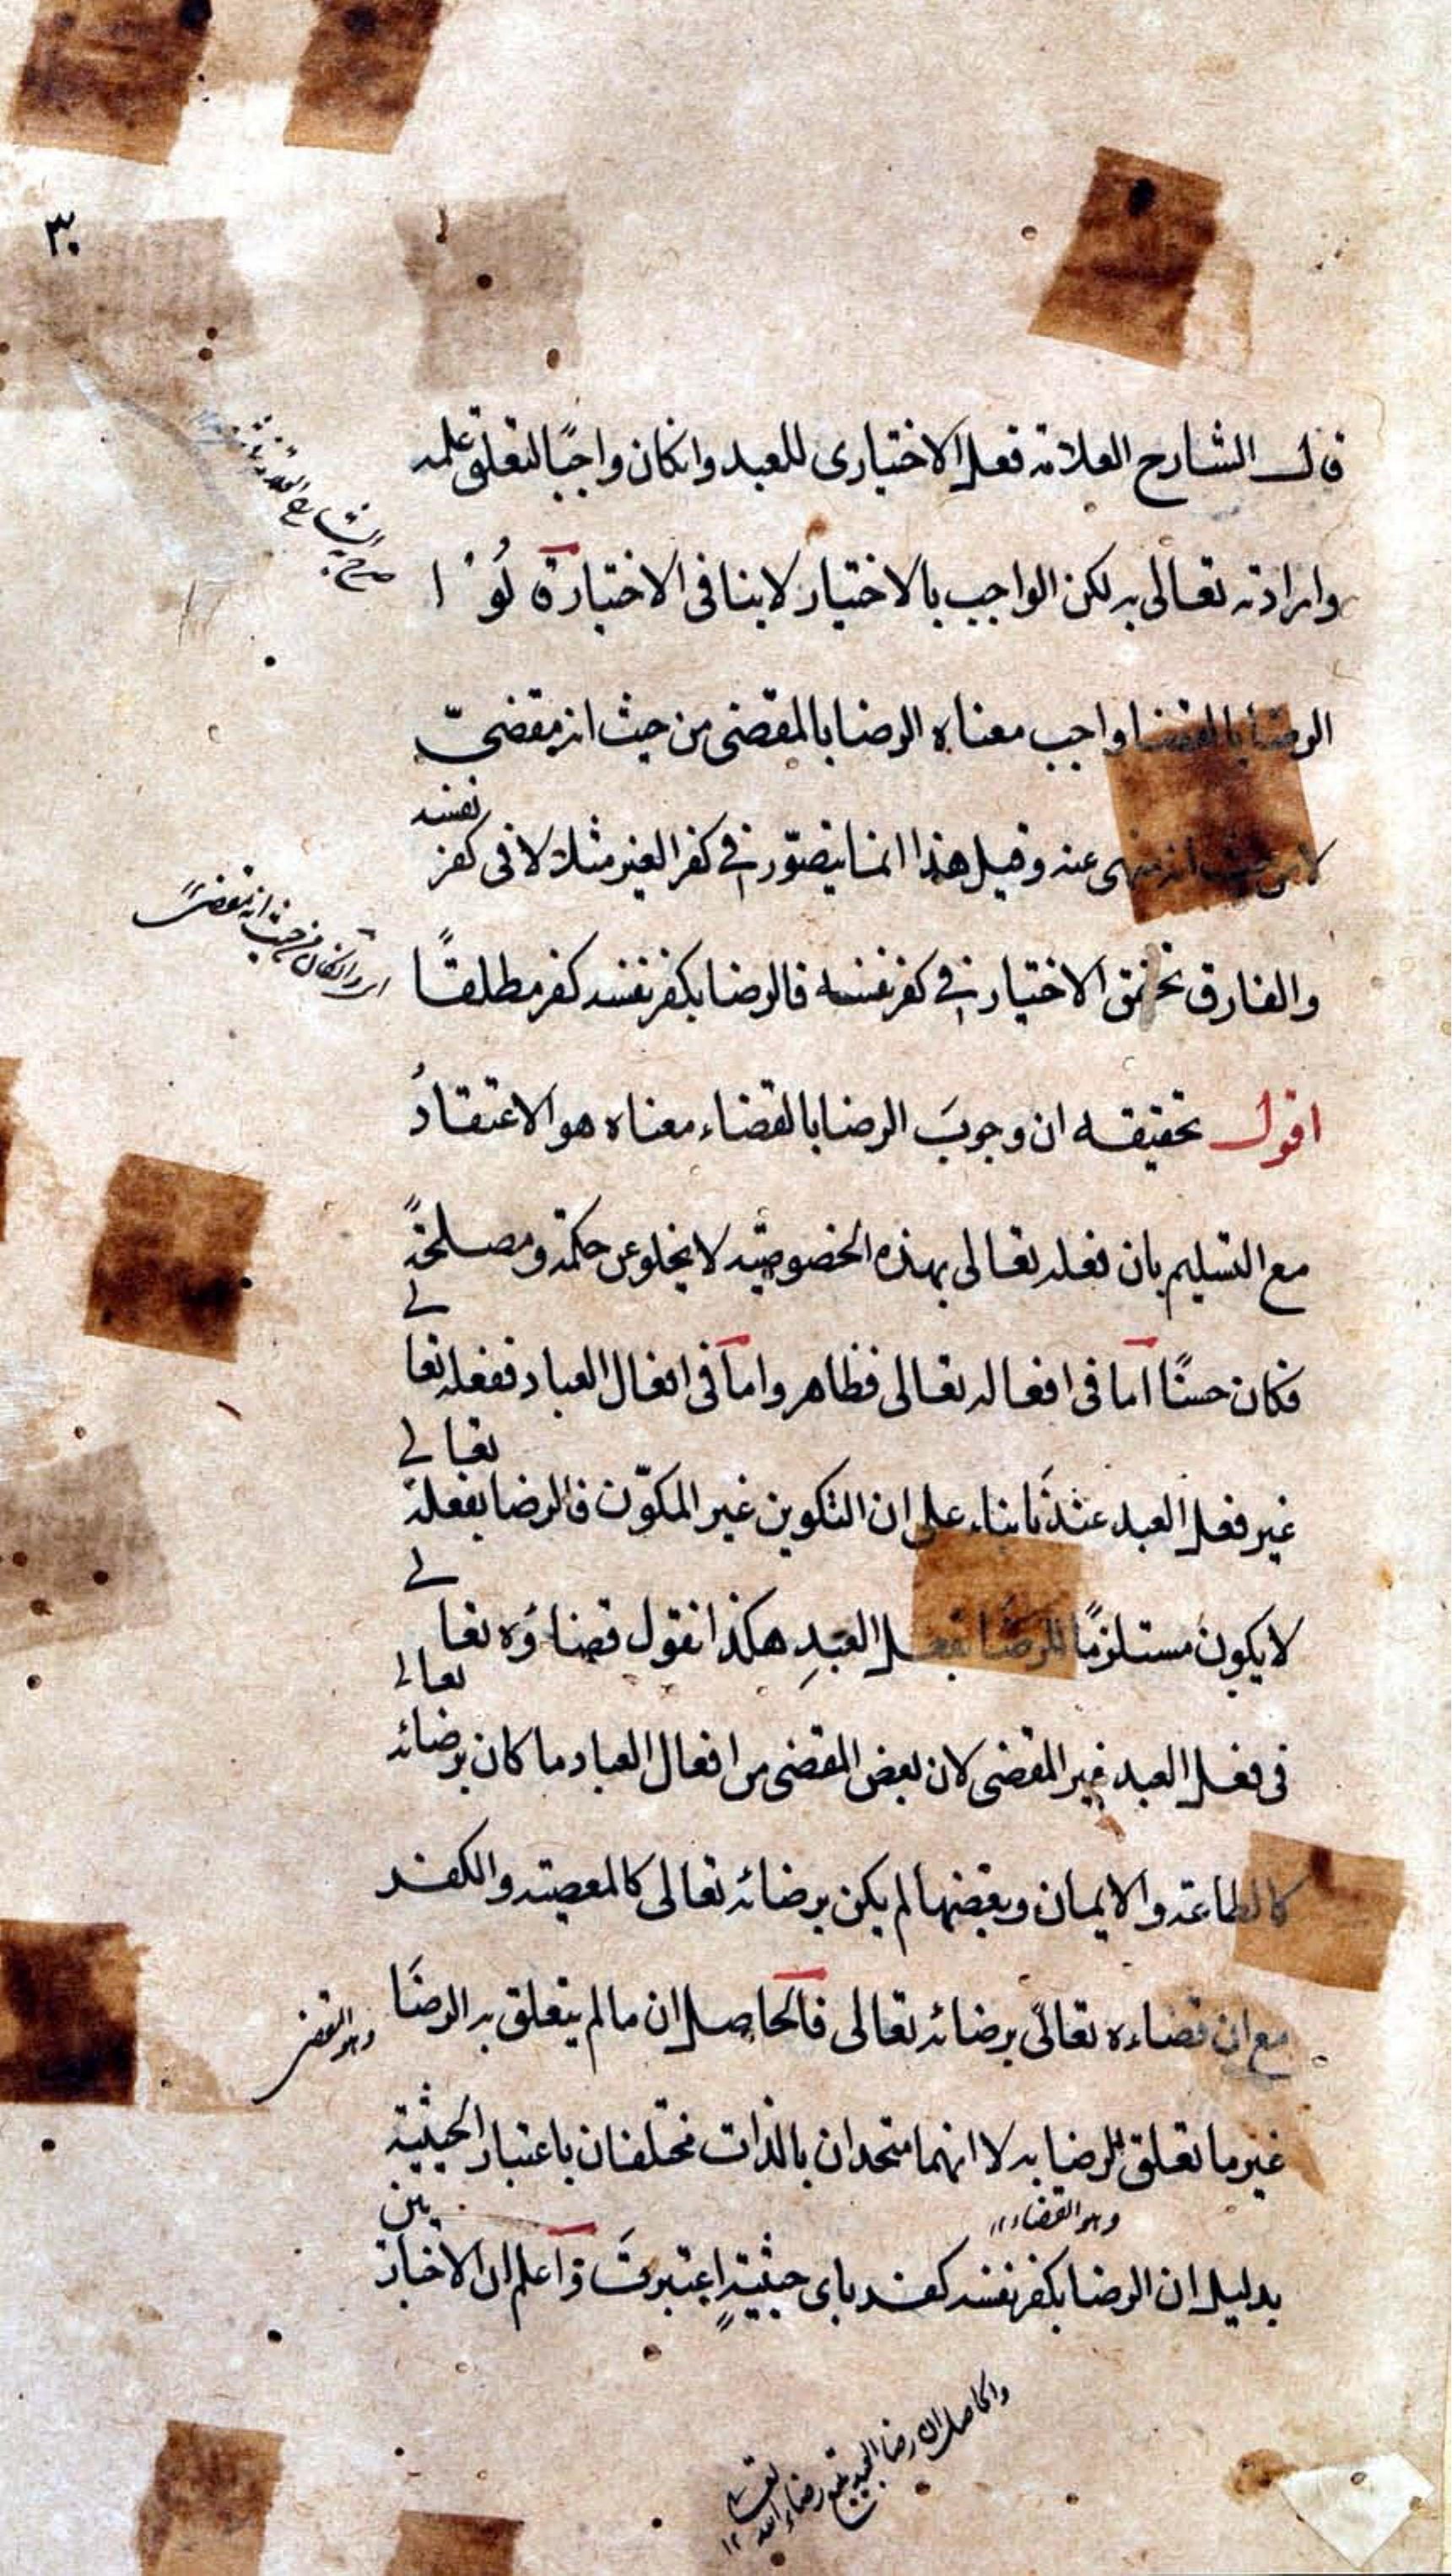 ٣٠
قال الشارح العلامة فعل الاختيارى للعبد وانكان واجبًا لتعلق علمه
وارادته تعالى به لكن الواجب بالاختيار لا ينافى الاختيار ة
الرضا بالقضا واجب معناه الرضا بالمقضى من حيث انه مقضىّ
لا من حيث انه منهى عنه وقيل هذا انما يتصوّر فى كفر الغير مثلا لا فى كفر نفسه
والفارق تحقق الاختيار فى كفر نفسه فالرضا بكفر نفسه كفر مطلقًا
ای وانكان من حيث انه مقضى
اقول تحقيقه ان وجوبَ الرضا بالقضاء معناه هو الاعتقادُ
مع التسليم بان فعله تعالى بهذه الخصوصية لا يخلو عن حكمة ومصلحة
فكان حسنًا اما فى افعاله تعالى فظاهر واما فى افعال العباد ففعله تعالى
غير فعل العبد عندَنا بناء على ان التكوين غير المكوّن فالرضا بفعله تعالى
لا يكون مستلزمًا للرضا بفعل العبدِ هكذا نقول قضاؤه تعالى
فى فعل العبد غير المقضى لان بعض المقضى من افعال العباد ما كان برضائه تعالى
كالطاعة والايمان وبعضها لم يكن برضائه تعالى كالمعصية والكفر
مع ان قضاءه تعالى برضائه تعالى فالحاصل ان ما لم يتعلق به الرضا
وهو المقضى
غير ما تعلق الرضا به لا انهما متحدان بالذات مختلفان باعتبار الحيثية
وهو القضاء ١٢
بدليل ان الرضا بكفر نفسه كفر باى حيثيةٍ اعتبرتَ ة واعلم ان الاخبار بين
والحاصل ان رضا العبد تبع رضاء الله تعالى ١٢